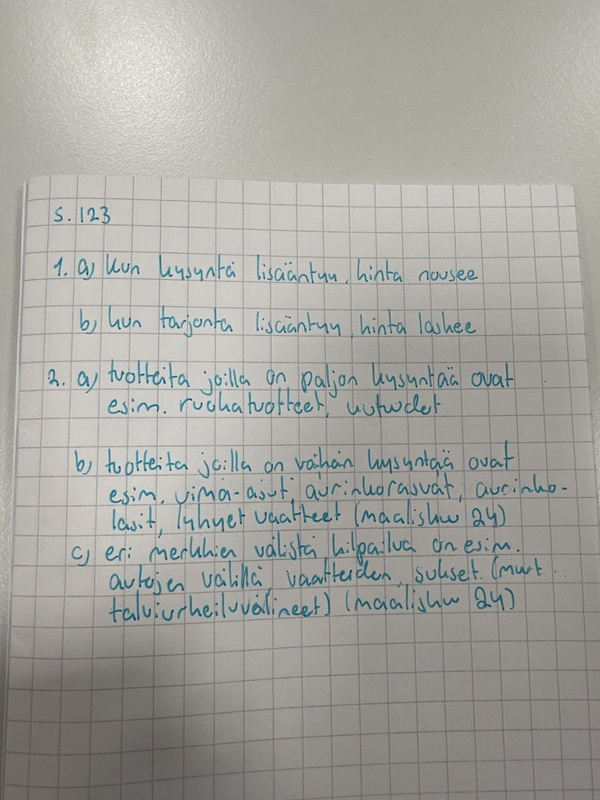 s. 123
1. a) Kun kysyntä lisääntyy, hinta nousee
b) kun tarjonta lisääntyy, hinta laskee
2. a) tuotteita joilla on paljon kysyntää ovat
esim. ruokatuotteet, uutuudet
b) tuotteita joilla on vähän kysyntää ovat
esim. uima-asut, aurinkorasvat, aurinko-
lasit, lyhyet vaatteet (maaliskuu 24)
c) eri merkkien välistä kilpailua on esim.
autojen välillä, vaatteiden, sukset (muut
talviurheiluvälineet) (maaliskuu 24)